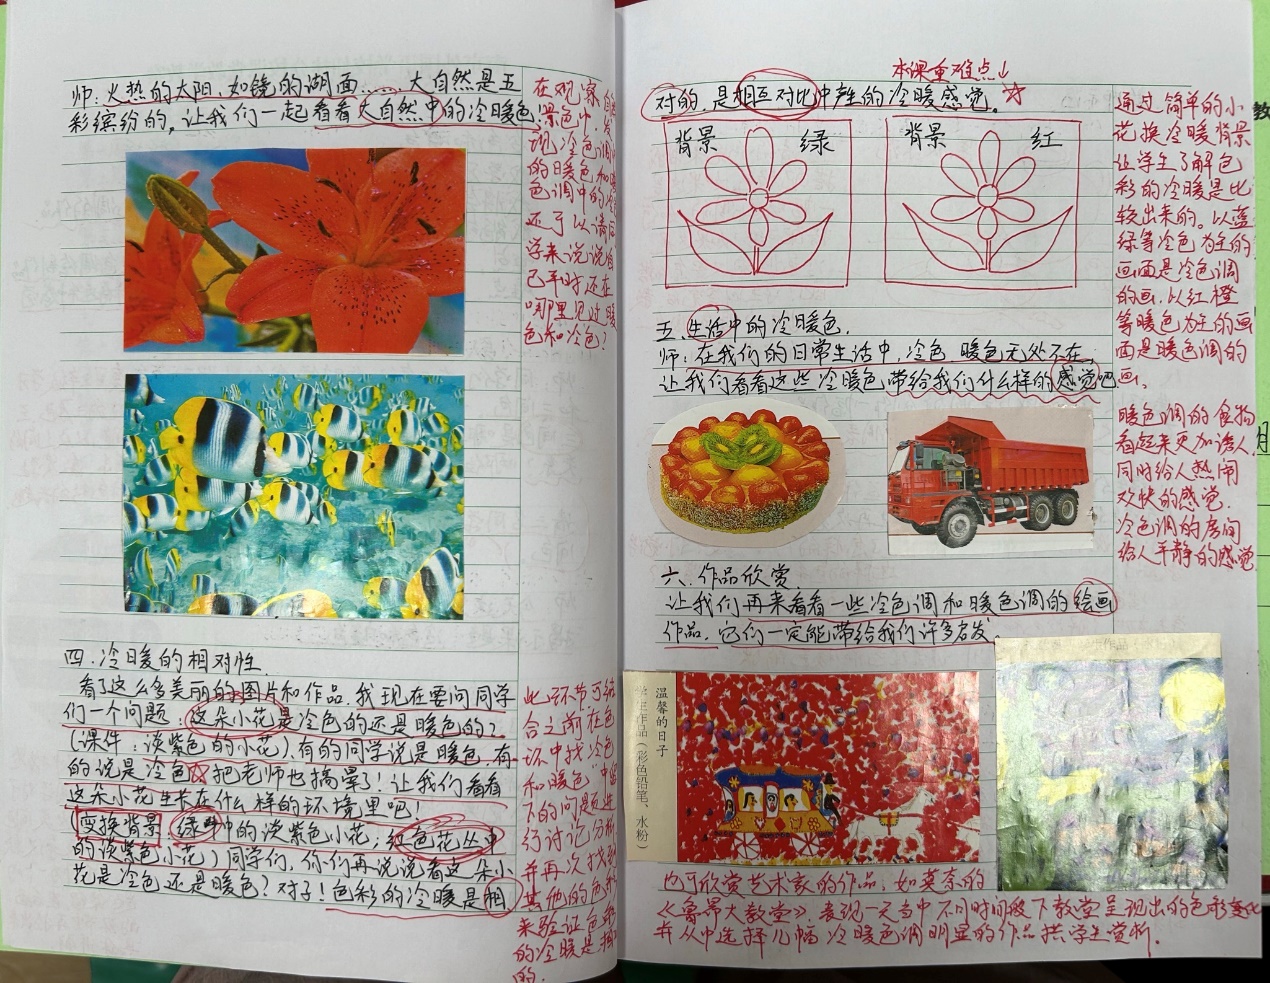 师：火热的太阳，如镜的湖面……大自然是五
彩缤纷的，让我们一起看看大自然中的冷暖色。
四．冷暖的相对性
看了这么多美丽的图片和作品，我现在要问同学
们一个问题：这朵小花是冷色的还是暖色的？
（课件：淡紫色的小花）有的同学说是暖色，有
的说是冷色 把老师也搞晕了！让我们看看
这朵小花生长在什么样的环境里吧！
（变换背景 绿叶中的淡紫色小花；红色花丛中
的淡紫色小花）同学们，你们再说说看这朵小
花是冷色还是暖色？对了！色彩的冷暖是相
在观察自
然景色中，发
现冷色调
的暖色和暖
色调中的冷
还可以请同
学来说说自
己平时还在
哪里见过暖
色和冷色？
此环节可结
合之前在色
环中找冷色
和暖色，中留
下的问题进
行讨论分析
并再次找到
其他的色并
来验证色彩
的冷暖是相
的．
本课重难点↓
对的，是相互对比中产生的冷暖感觉。
背景 绿
背景 红
五．生活中的冷暖色．
师：在我们的日常生活中，冷色 暖色无处不在，
让我们看看这些冷暖色带给我们什么样的感觉吧
六．作品欣赏．
让我们再来看看一些冷色调和暖色调的绘画
作品，它们一定能带给我们许多启发。
温馨的日子
学生作品（彩色铅笔、水粉）
也可欣赏艺术家的作品，如莫奈的
《鲁昂大教堂》，表现一天当中不同时间段下教堂呈现出的色彩变化
并从中选择几幅冷暖色调明显的作品供学生赏析．
通过简单的小
花换冷暖背景
让学生了解色
彩的冷暖是比
较出来的。以蓝
绿等冷色为主的
画面是冷色调
的画，以红橙
等暖色为主的画
面是暖色调的
画。
暖色调的食物
看起来更加诱人
同时给人热闹
欢快的感觉．
冷色调的房间
给人平静的感觉